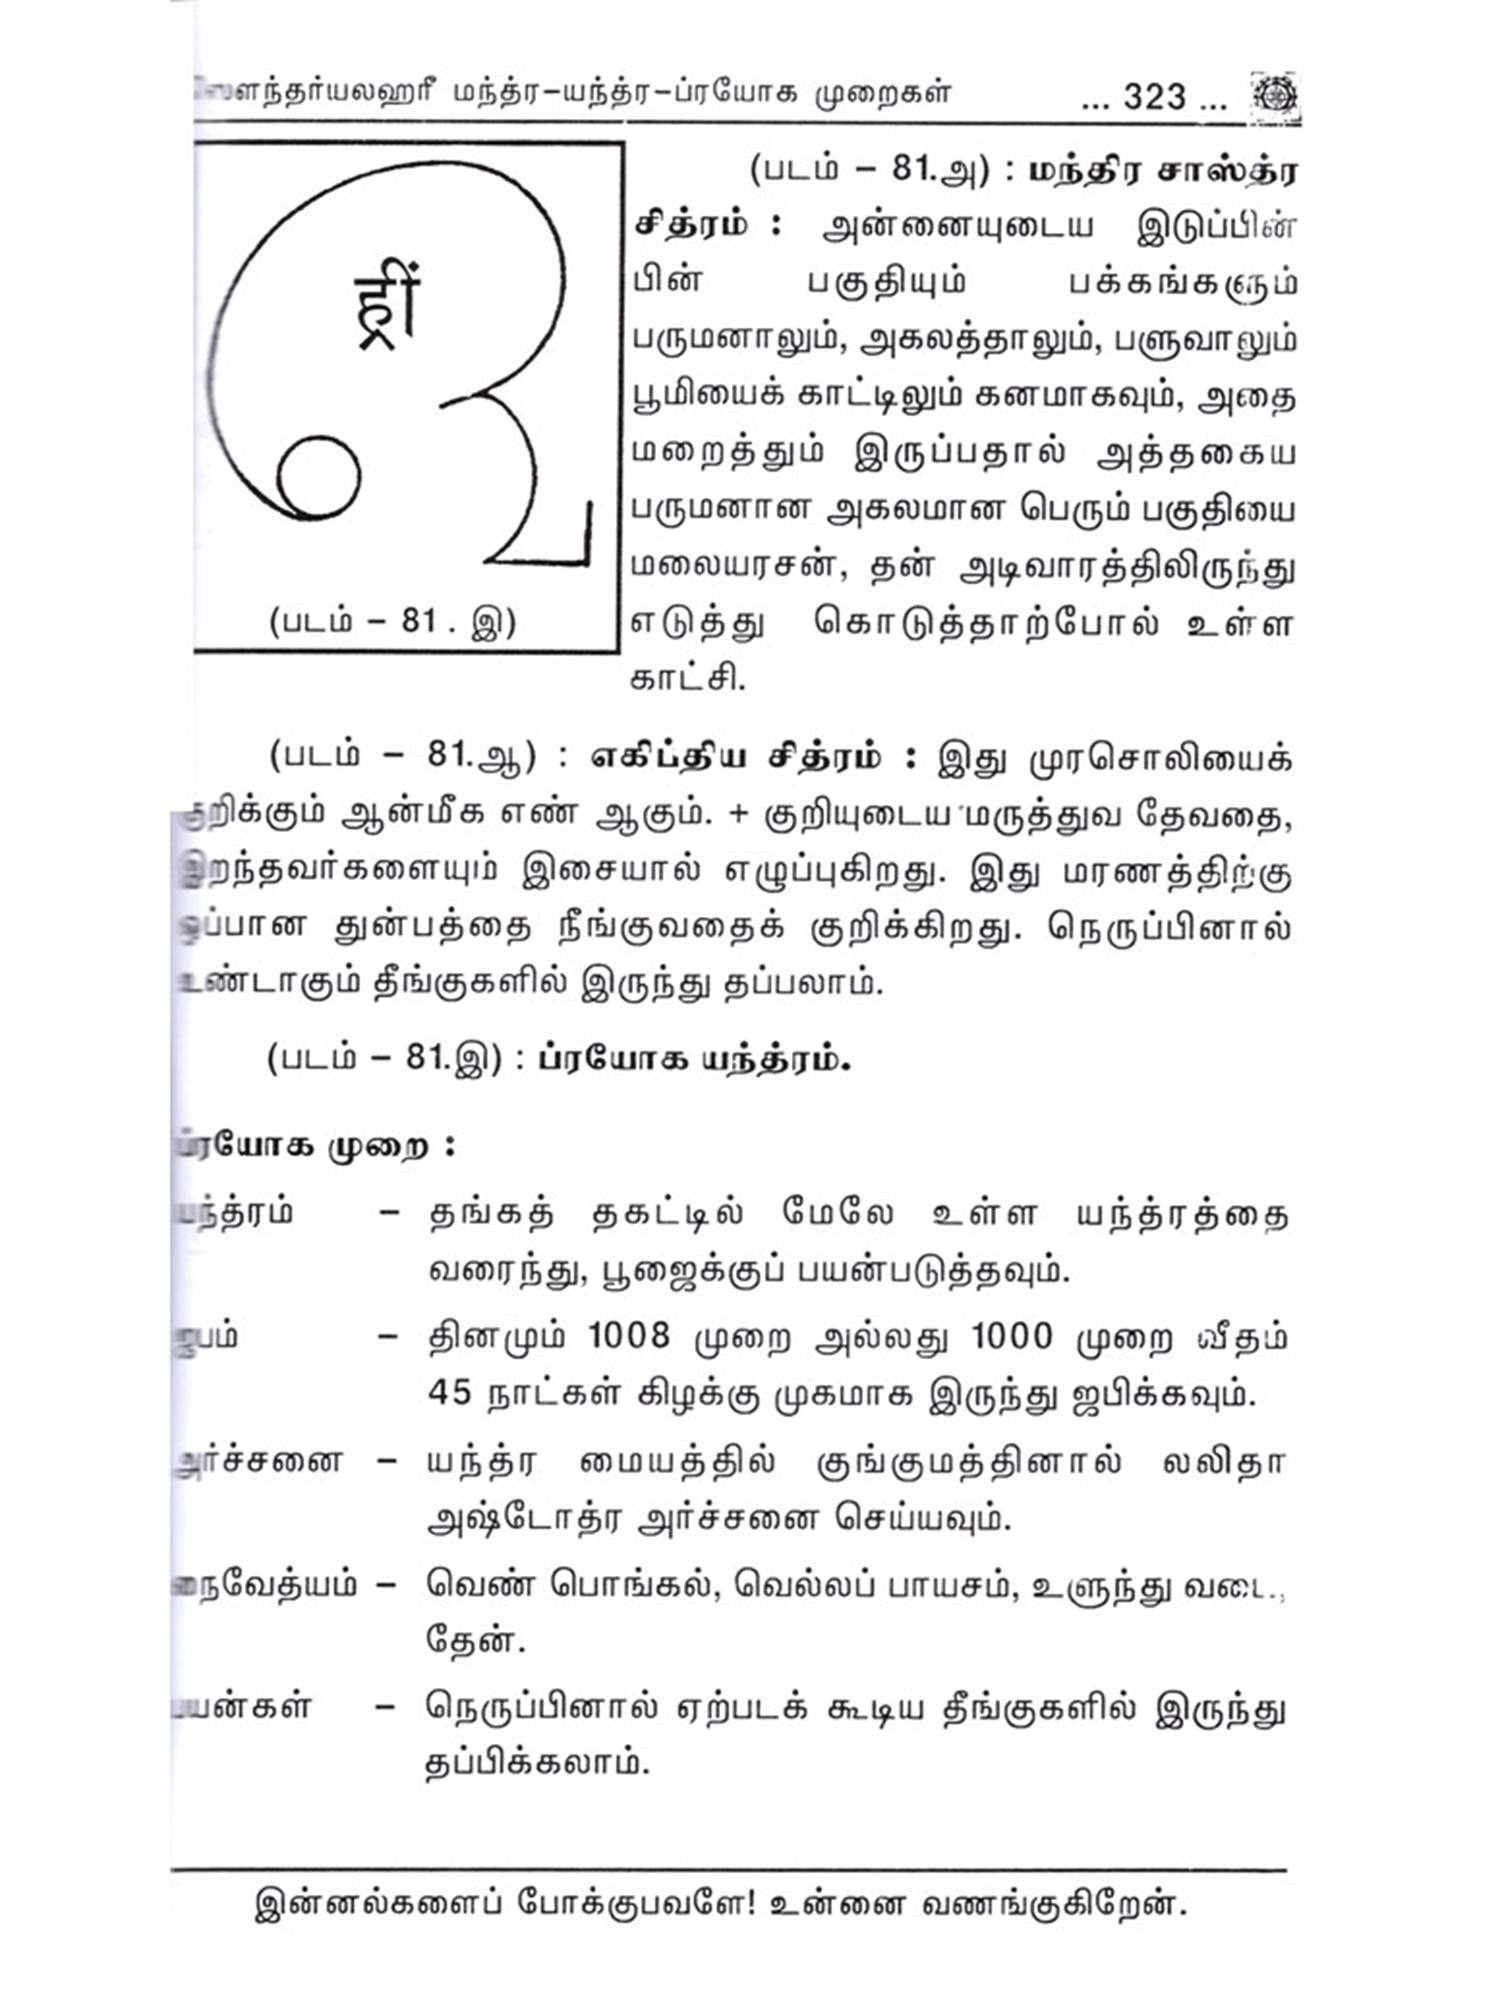 ஸௌந்தர்யலஹரீ மந்த்ர-யந்த்ர-ப்ரயோக முறைகள் ... 323 ...
ह्रीं
(படம் - 81 . இ)
(படம் - 81.அ) : மந்திர சாஸ்த்ர
சித்ரம் : அன்னையுடைய இடுப்பின்
பின் பகுதியும் பக்கங்களும்
பருமனாலும், அகலத்தாலும், பளுவாலும்
பூமியைக் காட்டிலும் கனமாகவும், அதை
மறைத்தும் இருப்பதால் அத்தகைய
பருமனான அகலமான பெரும் பகுதியை
மலையரசன், தன் அடிவாரத்திலிருந்து
எடுத்து கொடுத்தாற்போல் உள்ள
காட்சி.
(படம் - 81.ஆ) : எகிப்திய சித்ரம் : இது முரசொலியைக்
குறிக்கும் ஆன்மீக எண் ஆகும். + குறியுடைய மருத்துவ தேவதை,
இறந்தவர்களையும் இசையால் எழுப்புகிறது. இது மரணத்திற்கு
ஒப்பான துன்பத்தை நீங்குவதைக் குறிக்கிறது. நெருப்பினால்
உண்டாகும் தீங்குகளில் இருந்து தப்பலாம்.
(படம் - 81.இ) : ப்ரயோக யந்த்ரம்.
ப்ரயோக முறை :
யந்த்ரம் - தங்கத் தகட்டில் மேலே உள்ள யந்த்ரத்தை
வரைந்து, பூஜைக்குப் பயன்படுத்தவும்.
ஜபம் - தினமும் 1008 முறை அல்லது 1000 முறை வீதம்
45 நாட்கள் கிழக்கு முகமாக இருந்து ஜபிக்கவும்.
அர்ச்சனை - யந்த்ர மையத்தில் குங்குமத்தினால் லலிதா
அஷ்டோத்ர அர்ச்சனை செய்யவும்.
நைவேத்யம் - வெண் பொங்கல், வெல்லப் பாயசம், உளுந்து வடை,
தேன்.
பயன்கள் - நெருப்பினால் ஏற்படக் கூடிய தீங்குகளில் இருந்து
தப்பிக்கலாம்.
இன்னல்களைப் போக்குபவளே! உன்னை வணங்குகிறேன்.